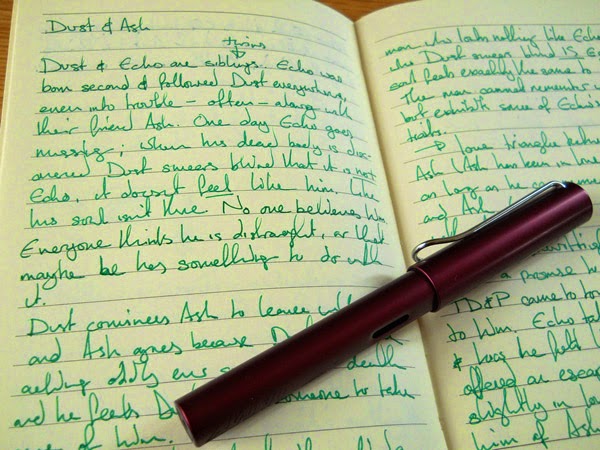 Dust & Ash
twins
Dust & Echo are siblings. Echo was
born second & followed Dust everywhere,
even into trouble – often – along with
their friend Ash. One day Echo goes
missing; when his dead body is disc-
overed Dust swears blind that it is not
Echo, it doesn't feel like him, like
his soul isn't there. No one believes him.
Everyone thinks he is distraught, or that
maybe he has something to do with
it.
Dust convinces Ash to leave with
and Ash agrees because
acting oddly ever death
and he feels someone to take
care of him.
man who looks nothing like Echo
who Dust swears blind IS
soul feels exactly the same to
The man cannot remember
but exhibits some of Echo's
traits.
→ love triangle between
Ash (Ash has been in love
as long as he can
and Ash
a promise
came to
to him. Echo
& how he felt
offered an escape
slightly in love
him of Ash